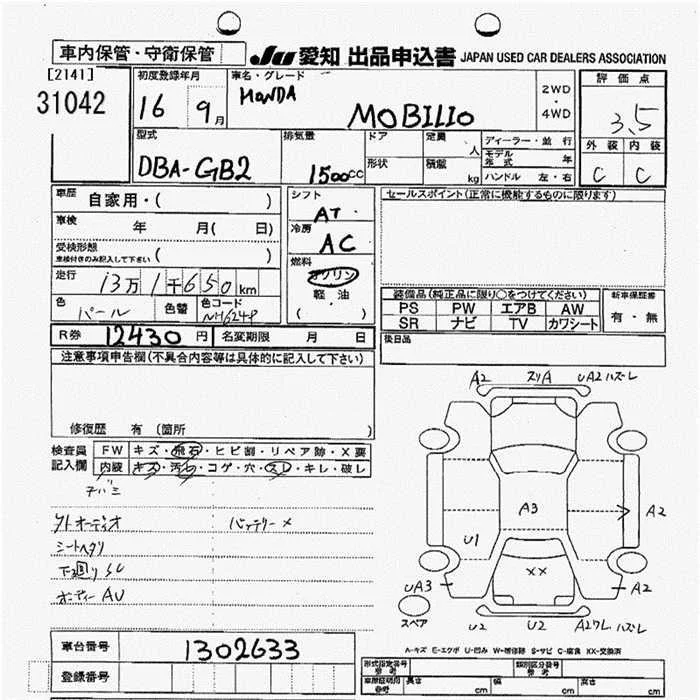 車内保管・守衛保管
JU 愛知 出品申込書 JAPAN USED CAR DEALERS ASSOCIATION
[2141]
31042
初度登録年月
16 9月
車名・グレード
HONDA
MOBILIO
2WD
・
4WD
評価点
3.5
外装 内装
C C
型式
DBA-GB2
排気量
1500cc
ドア
形状
定員
人
積載
kg
ディーラー・並行
モデル年式 年
ハンドル 左・右
車歴
自家用・( )
車検
年 月( 日)
受検形態
車検付きのみ記入して下さい ( )
走行
13万1千650km
色
パール
色替
色コード
NH624P
シフト
AT
冷房
AC
燃料
ガソリン
・
軽・油
( )
セールスポイント(正常に機能するものに限ります)
装備品(純正品に限り○をつけてください)
PS PW エアB AW
SR ナビ TV カワシート
新車保証書
有・無
後日品
R券 12430円
名変期限 月 日
注意事項申告欄(不具合内容等は具体的に記入して下さい)
修復歴 有 (箇所 )
検査員
記入欄
FW キズ・飛石・ヒビ割・リペア跡・X要
内装 キズ・汚れ・コゲ・穴・スレ・キレ・破レ
外オーディオ
バッテリー×
シートヘタリ
下廻りSU
オーディーAU
A2 スリA UA2 ハズレ
A3
A2
U1
XX
UA3
A2
スペア
U2 U2 A2ワレ ハズレ
A-キズ E-エクボ U-凹み W-補修跡 S-サビ C-腐食 XX-交換済
車台番号
1302633
登録番号
形式指定番号
参考
類別区分番号
参考
車庫証明用
参考
長さ cm
幅 cm
高さ cm